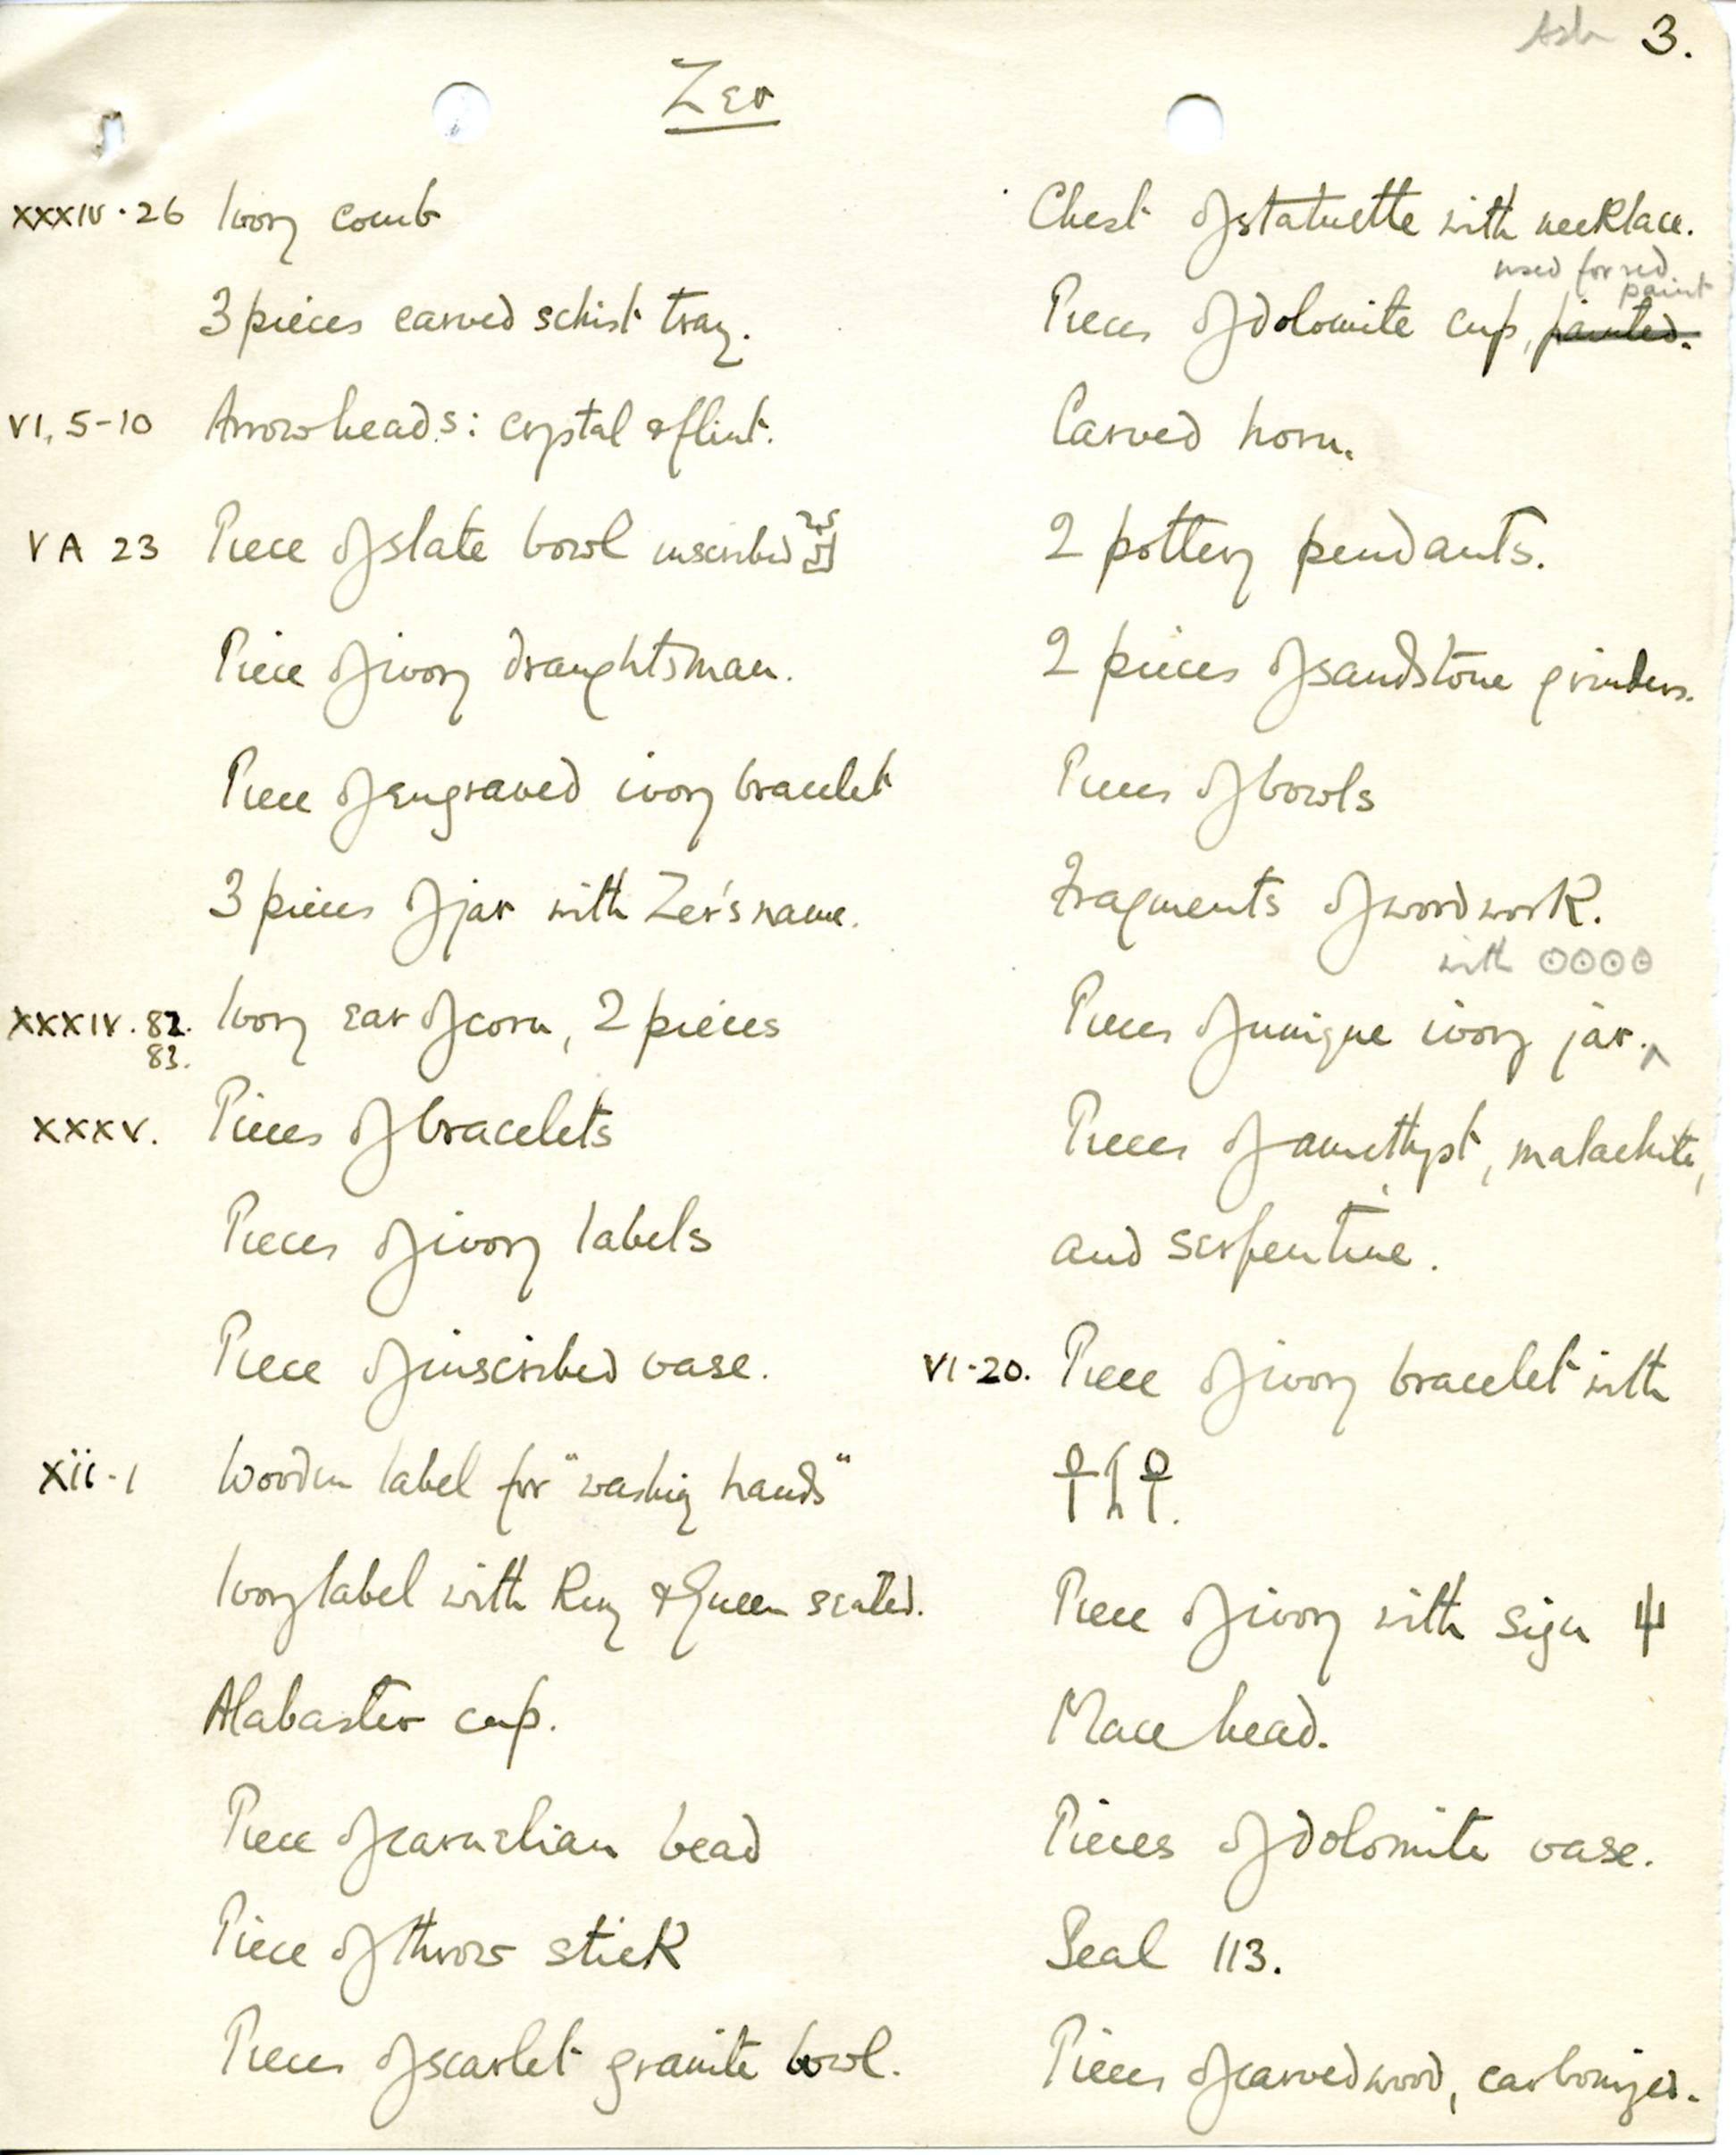 Ash 3.
Zer
XXXIV. 26 Ivory comb
3 pieces carved schist tray.
VI, 5-10 Arrowheads: crystal & flint.
V A 23 Piece of slate bowl inscribed
Piece of ivory draughtsman.
Piece of engraved ivory bracelet
3 pieces of jar with Zer's name.
XXXIV. 82. Ivory ear of corn, 2 pieces
83.
XXXV. Pieces of bracelets
Pieces of ivory labels
Piece of inscribed vase.
XII-1 Wooden label for "washing hands"
Ivory label with King & Queen seated.
Alabaster cup.
Piece of carnelian bead
Piece of throw stick
Pieces of scarlet granite bowl.
Chest of statuette with necklace.
used for red
paint
Pieces of dolomite cup, painted.
Carved horn.
2 pottery pendants.
2 pieces of sandstone grinders.
Pieces of bowls
Fragments of woodwork.
with ⊙⊙⊙⊙
Pieces of unique ivory jar.^
Pieces of amethyst, malachite,
and serpentine.
VI-20. Piece of ivory bracelet with
☥𓌀☥.
Piece of ivory with sign
Mace head.
Pieces of dolomite vase.
Seal 113.
Pieces of carved wood, carbonized.